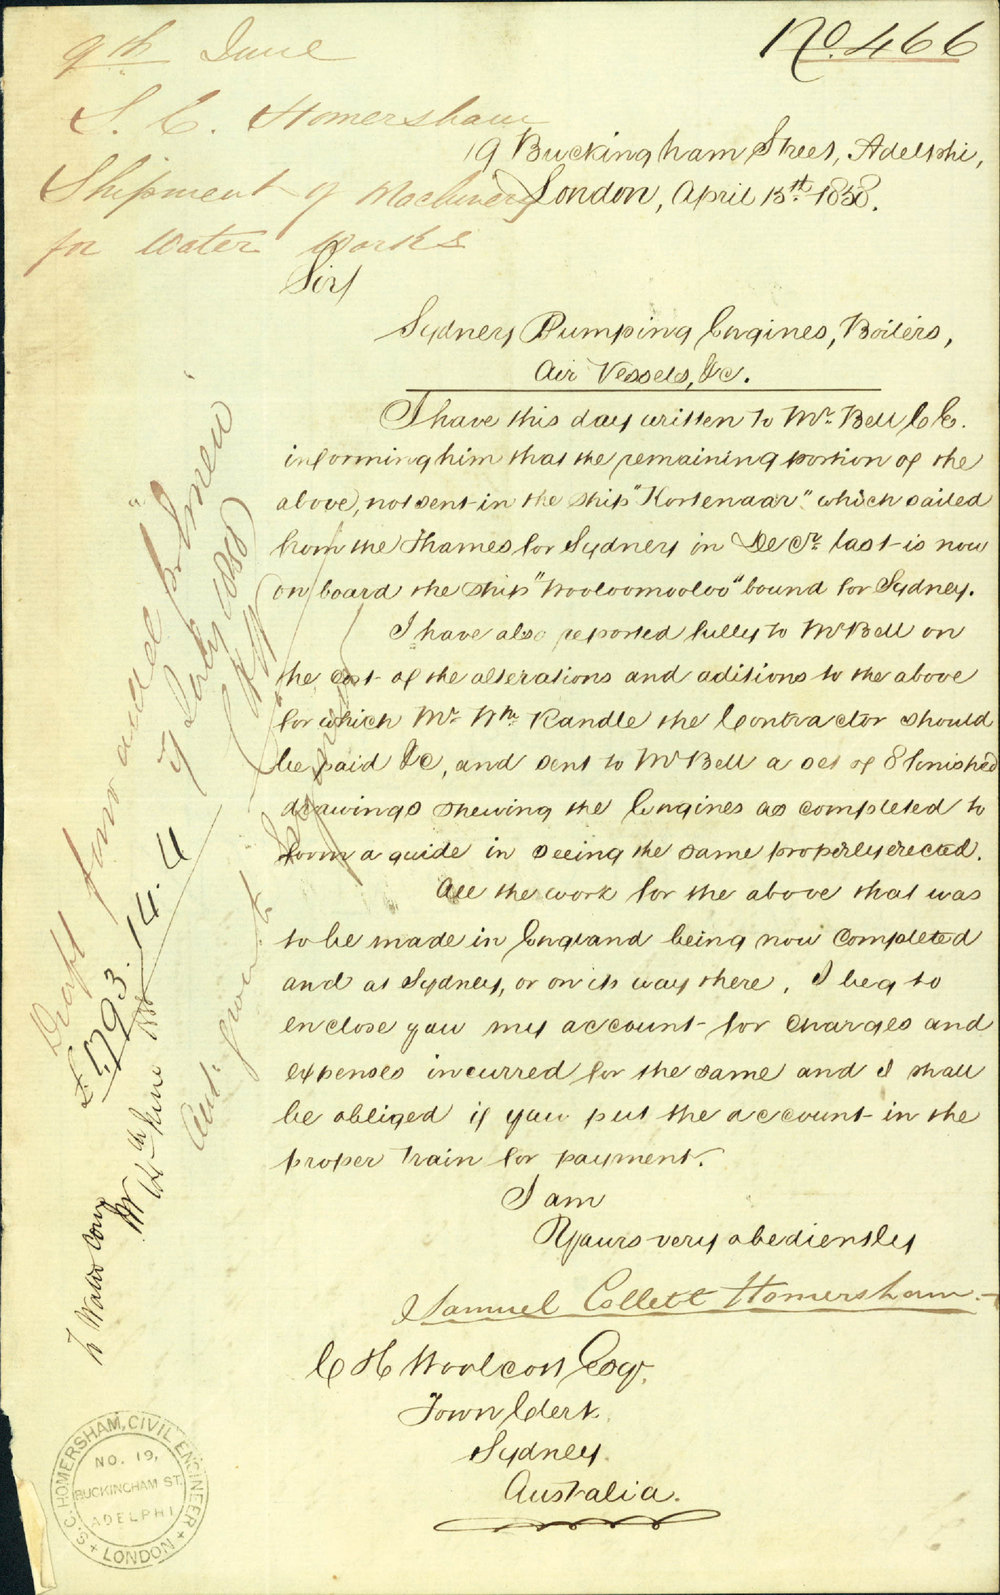 No. 466
9th June
S. C. Homersham
Shipment of Machinery
for Water Works
19 Buckingham Street, Adelphi,
London, April 13th 1858.
Sir/
Sydney Pumping Engines, Boilers,
Air Vessels, &c.
I have this day written to Mr. Bell C E.
informing him that the remaining portion of the
above, not sent in the ship "Kortenaar" which sailed
from the Thames for Sydney in Decr. last is now
on board the ship "Wooloomooloo" bound for Sydney.
I have also reported fully to Mr Bell on
the cost of the alterations and aditions to the above
for which Mr. Wm. Randle the Contractor should
be paid &c, and sent to Mr Bell a set of 8 finished
drawings shewing the Engines as completed to
form a guide in seeing the same properly erected.
All the work for the above that was
to be made in England being now completed
and at Sydney, or on its way there, I beg to
enclose you my account for charges and
expenses incurred for the same and I shall
be obliged if you put the account in the
proper train for payment.
I am
Yours very obediently
Samuel Collett Homersham
C H Woolcott Esqr.
Town Clerk
Sydney.
Australia.
Draft forwarded
of July 1858
£793.14.4
June
To Water
S. C. HOMERSHAM, CIVIL ENGINEER
LONDON
NO. 19,
BUCKINGHAM ST.
ADELPHI